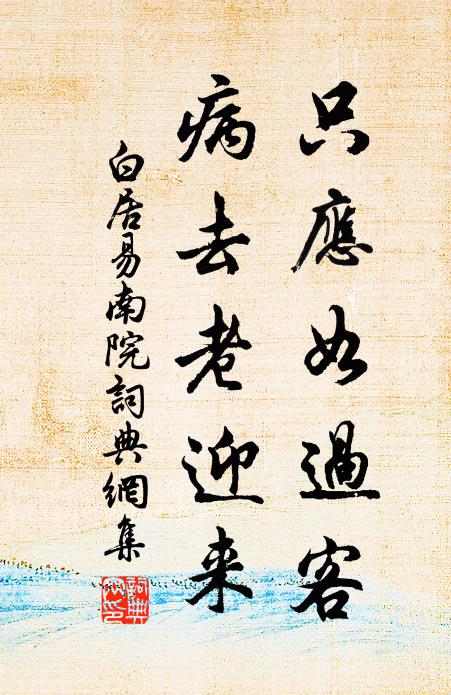 只應如過客
病去老迎来
白居易南院詞典網集